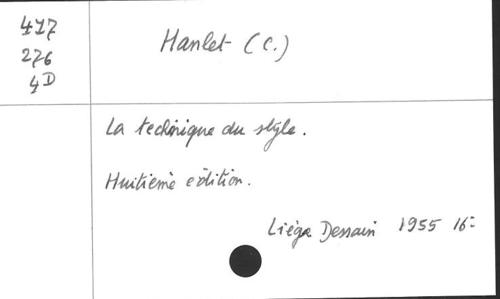 417
276
4D
Hanlet (C.)
La technique du style.
Huitième edition.
Liége Dessain 1955 16=